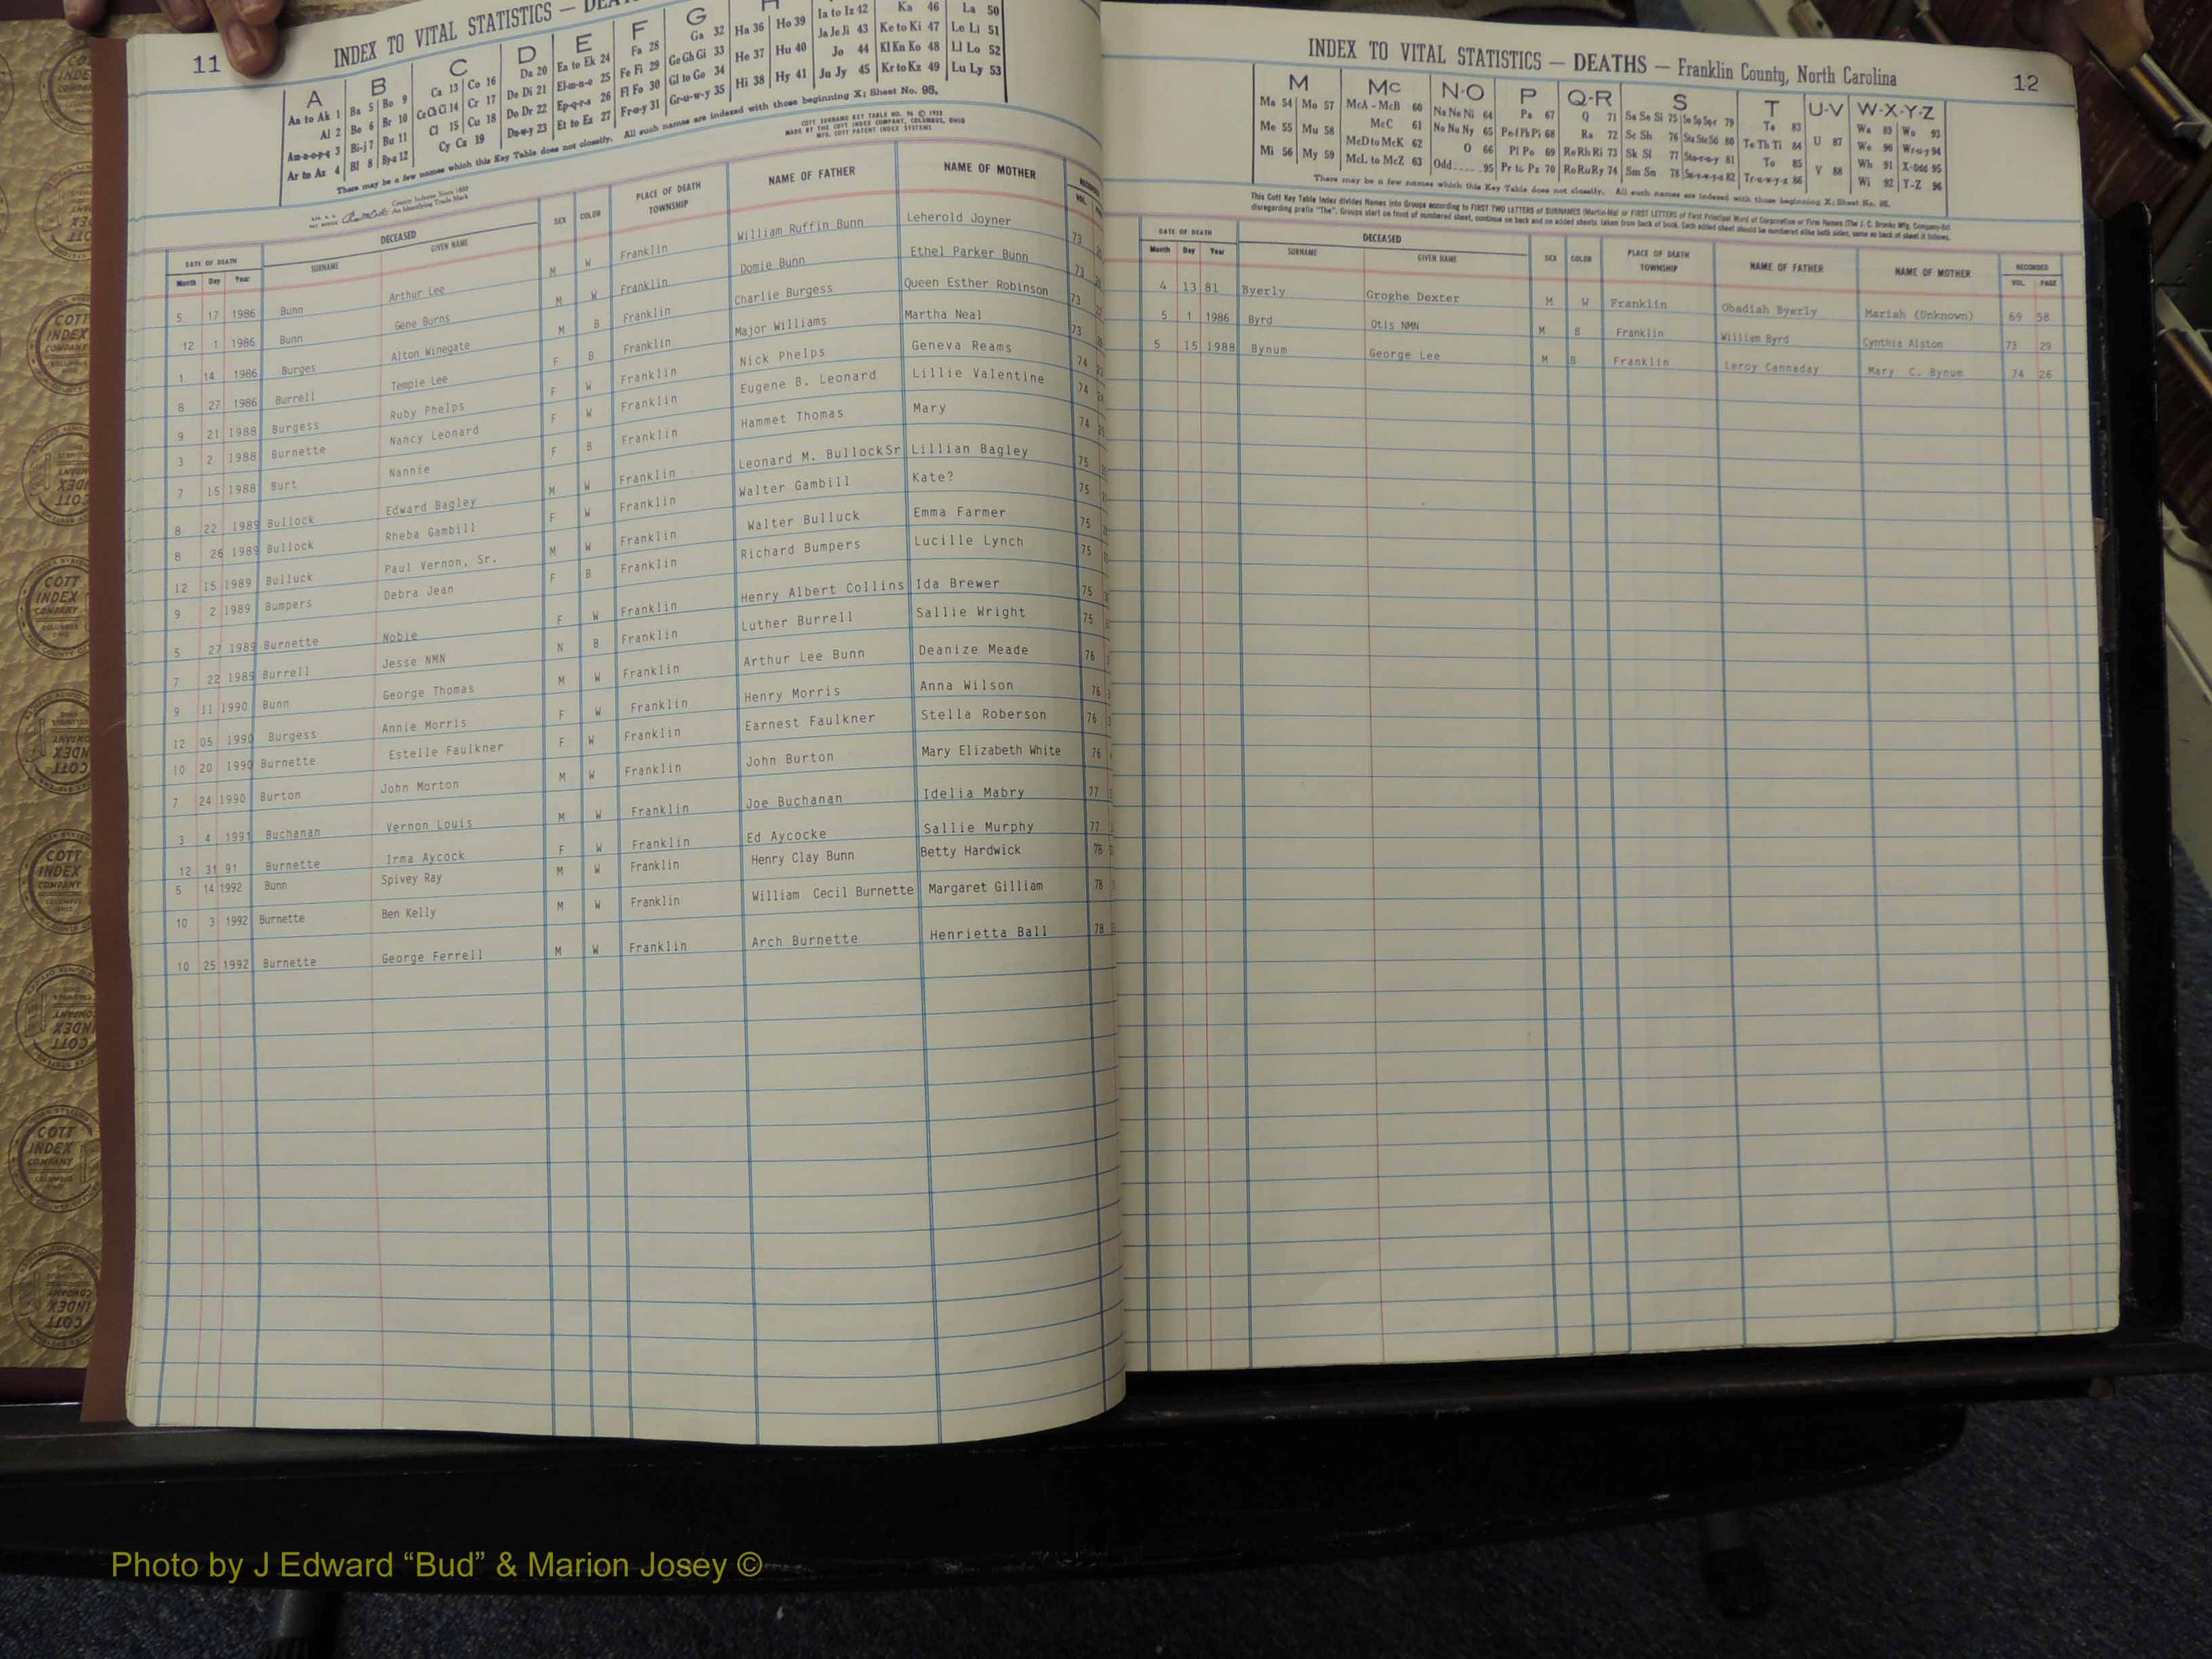 11
INDEX TO VITAL STATISTICS —
A B C D E F G
Aa to Ak 1 Ba 5 Bo 9 Ca 13 Co 16 Da 20 Ea to Ek 24 Fa 28 Ga 32 Ha 36 Ho 39 Ia to Iz 42 Ka 46 La 50
Al 2 Be 6 Br 10 Ce Ch Ci 14 Cr 17 De Di 21 El-m-n-o 25 Fe Fi 29 Ge Gh Gi 33 He 37 Hu 40 Ja Je Ji 43 Ke to Ki 47 Le Li 51
Am-n-o-p-q 3 Bi-j 7 Bu 11 Cl 15 Cu 18 Do Dr 22 Ep-q-r-s 26 Fl Fo 30 Gl to Go 34 Hi 38 Hy 41 Jo 44 Kl Kn Ko 48 Ll Lo 52
Ar to Az 4 Bl 8 By-z 12 Cy Cz 19 Du-w-y 23 Et to Ez 27 Fr-u-y 31 Gr-u-w-y 35 Ju Jy 45 Kr to Kz 49 Lu Ly 53
There may be a few names which this Key Table does not classify. All such names are indexed with those beginning X; Sheet No. 95.
COTT SURNAME KEY TABLE NO. 96 © 1922
MADE BY THE COTT INDEX COMPANY, COLUMBUS, OHIO
MFG. COTT PATENT INDEX SYSTEMS
County Indexes Since 1888
An Identifying Trade Mark
DATE OF DEATH DECEASED SEX COLOR PLACE OF DEATH TOWNSHIP NAME OF FATHER NAME OF MOTHER
Month Day Year SURNAME GIVEN NAME VOL.
5 17 1986 Bunn Arthur Lee M W Franklin William Ruffin Bunn Leherold Joyner 73
12 1 1986 Bunn Gene Burns M W Franklin Domie Bunn Ethel Parker Bunn 73
1 14 1986 Burges Alton Winegate M B Franklin Charlie Burgess Queen Esther Robinson 73
8 27 1986 Burrell Tempie Lee F B Franklin Major Williams Martha Neal 73
9 21 1988 Burgess Ruby Phelps F W Franklin Nick Phelps Geneva Reams 74
3 2 1988 Burnette Nancy Leonard F W Franklin Eugene B. Leonard Lillie Valentine 74
7 15 1988 Burt Nannie F B Franklin Hammet Thomas Mary 74
8 22 1989 Bullock Edward Bagley M W Franklin Leonard M. Bullock Sr Lillian Bagley 75
8 26 1989 Bullock Rheba Gambill F W Franklin Walter Gambill Kate? 75
12 15 1989 Bulluck Paul Vernon, Sr. M W Franklin Walter Bulluck Emma Farmer 75
9 2 1989 Bumpers Debra Jean F B Franklin Richard Bumpers Lucille Lynch 75
5 27 1989 Burnette Nobie F W Franklin Henry Albert Collins Ida Brewer 75
7 22 1989 Burrell Jesse NMN N B Franklin Luther Burrell Sallie Wright 75
9 11 1990 Bunn George Thomas M W Franklin Arthur Lee Bunn Deanize Meade 76
12 05 1990 Burgess Annie Morris F W Franklin Henry Morris Anna Wilson 76
10 20 1990 Burnette Estelle Faulkner F W Franklin Earnest Faulkner Stella Roberson 76
7 24 1990 Burton John Morton M W Franklin John Burton Mary Elizabeth White 76
3 4 1991 Buchanan Vernon Louis M W Franklin Joe Buchanan Idelia Mabry 77
12 31 91 Burnette Irma Aycock F W Franklin Ed Aycocke Sallie Murphy 77
5 14 1992 Bunn Spivey Ray M W Franklin Henry Clay Bunn Betty Hardwick 78
10 3 1992 Burnette Ben Kelly M W Franklin William Cecil Burnette Margaret Gilliam 78
10 25 1992 Burnette George Ferrell M W Franklin Arch Burnette Henrietta Ball 78
INDEX TO VITAL STATISTICS — DEATHS — Franklin County, North Carolina
12
M Mc N-O P Q-R S T U-V W-X-Y-Z
Ma 54 Mo 57 McA - McB 60 Na Ne Ni 64 Pa 67 Q 71 Sa Se Si 75 So Sp Sq-r 79 Ta 83 Wa 89 Wo 93
Me 55 Mu 58 McC 61 No Nu Ny 65 Pe-f Ph Pi 68 Ra 72 Sc Sh 76 Sta Ste 80 Te Th Ti 84 U 87 We 90 Wr-u-y 94
Mi 56 My 59 McD to McK 62 O 66 Pl Po 69 Re Rh Ri 73 Sk Sl 77 Sto-r-u-y 81 To 85 V 88 Wh 91 X-Odd 95
McL to McZ 63 Odd.....95 Pr to Pz 70 Ro Ru Ry 74 Sm Sn 78 Su-v-w-y-z 82 Tr-u-w-y-z 86 Wi 92 Y-Z 96
There may be a few names which this Key Table does not classify. All such names are indexed with those beginning X; Sheet No. 95.
This Cott Key Table Index divides Names into Groups according to FIRST TWO LETTERS of SURNAMES (Martin-Ma) or FIRST LETTERS of First Principal Word of Corporation or Firm Names (The J. C. Brooks Mfg. Company-Br)
disregarding prefix "The". Groups start on front of numbered sheet, continue on back and on added sheets taken from back of book. Each added sheet should be numbered alike both sides, same as back of sheet it follows.
DATE OF DEATH DECEASED SEX COLOR PLACE OF DEATH TOWNSHIP NAME OF FATHER NAME OF MOTHER RECORDED
Month Day Year SURNAME GIVEN NAME VOL. PAGE
4 13 81 Byerly Groghe Dexter M W Franklin Obadiah Byerly Mariah (Unknown) 69 58
5 1 1986 Byrd Otis NMN M B Franklin William Byrd Cynthia Alston 73 29
5 15 1988 Bynum George Lee M B Franklin Leroy Cannaday Mary C. Bynum 74 26
COTT INDEX COMPANY
Photo by J Edward “Bud” & Marion Josey ©